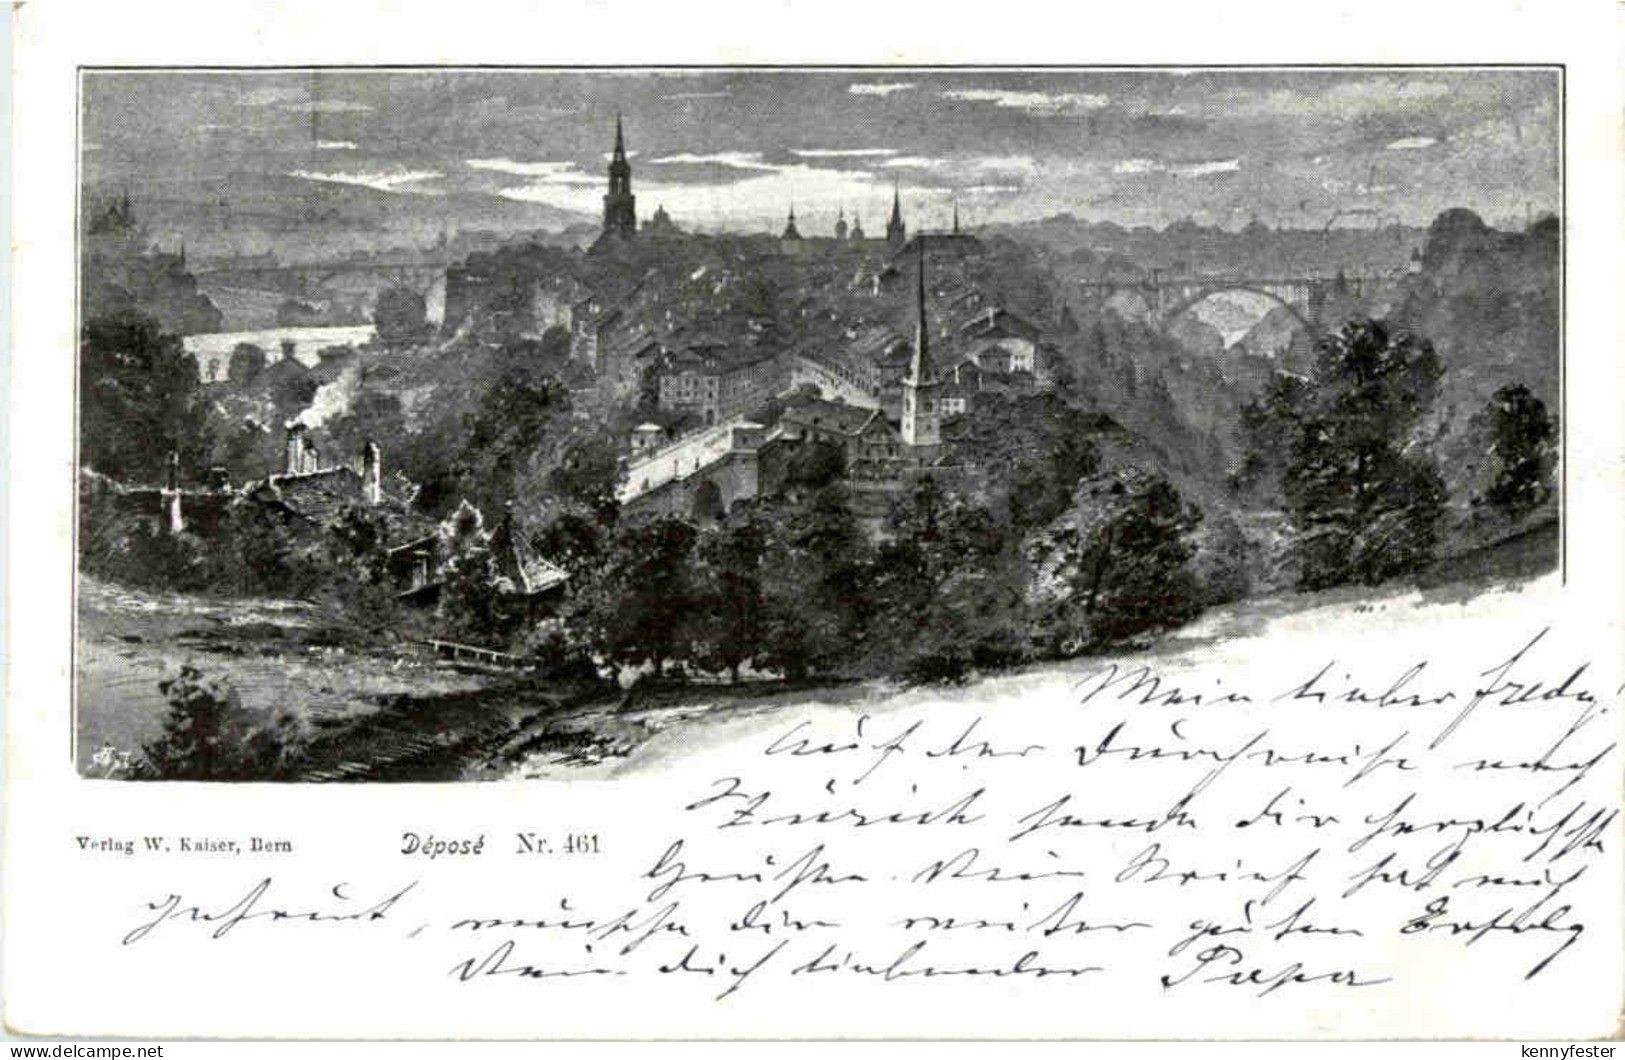 Mein lieber Fredy!
Auf der Durchreise nach
Zürich sende dir herzlichste
Verlag W. Kaiser, Bern Déposé Nr. 461
Grüße. Dein Brief hat mich
gefreut, wünsche dir weiter guten Erfolg
Dein dich liebender Papa
delcampe.net
kennyfester